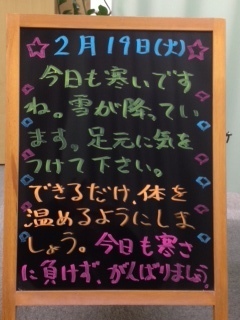 2月19日(火)
今日も寒いです
ね。雪が降ってい
ます。足元に気を
つけて下さい。
できるだけ、体を
温めるようにしま
しょう。今日も寒さ
に負けず、がんばりましょう。